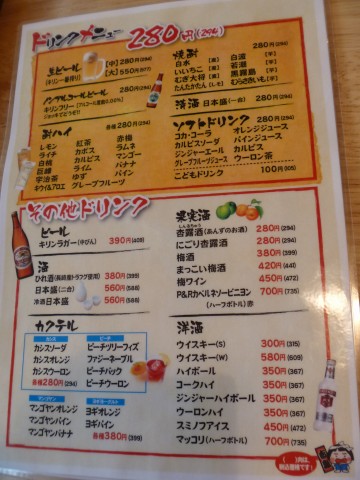 ドリンクメニュー 280円(294)
生ビール
(キリン一番搾り)
【中】280円(294)
【大】550円(577)
ノンアルコールビール
キリンフリー(アルコール度数0.00%)
280円(294)
酎ハイ
各種280円(294)
レモン 紅茶 赤梅
ライチ カボス ラムネ
白桃 カルピス マンゴー
巨峰 ライム バナナ
宇治茶 ゆず パイン
キウイ&アロエ グレープフルーツ
焼酎
280円(294)
白水 【麦】 白波 【芋】
いいちこ 【麦】 若潮 【芋】
むぎ大将 【麦】 黒霧島 【芋】
たんたかたん 【しそ】 むらさきいも 【芋】
清酒 日本盛(一合) 280円(294)
ソフトドリンク 280円(294)
コカ・コーラ オレンジジュース
カルピスソーダ パインジュース
ジンジャーエール カルピス
グレープフルーツジュース ウーロン茶
こどもドリンク 100円(105)
その他ドリンク
ビール
キリンラガー(中びん) 390円(409)
酒
ひれ酒(長崎産トラフグ使用) 380円(399)
日本盛(二合) 560円(588)
冷酒 日本盛 560円(588)
カクテル
カシス
カシスソーダ
カシスオレンジ
カシスウーロン
各種280円(294)
ピーチ
ピーチツリーフィズ
ファジーネーブル
ピーチバック
ピーチウーロン
マンゴヤン
マンゴヤンオレンジ
マンゴヤンパイン
マンゴヤンバナナ
ヨギオレンジ
ヨギパイン
各種380円(399)
果実酒
杏露酒(あんずのお酒) 280円(294)
にごり杏露酒 280円(294)
梅酒 380円(399)
まっこい梅酒 420円(441)
梅ワイン 450円(472)
P&Rカベルネソービニヨン 700円(735)
(ハーフボトル)赤
洋酒
ウイスキー(S) 300円(315)
ウイスキー(W) 580円(609)
ハイボール 350円(367)
コークハイ 350円(367)
ジンジャーハイボール 350円(367)
ウーロンハイ 350円(367)
スミノフアイス 450円(472)
マッコリ(ハーフボトル) 700円(735)
( )内は、
税込価格です!